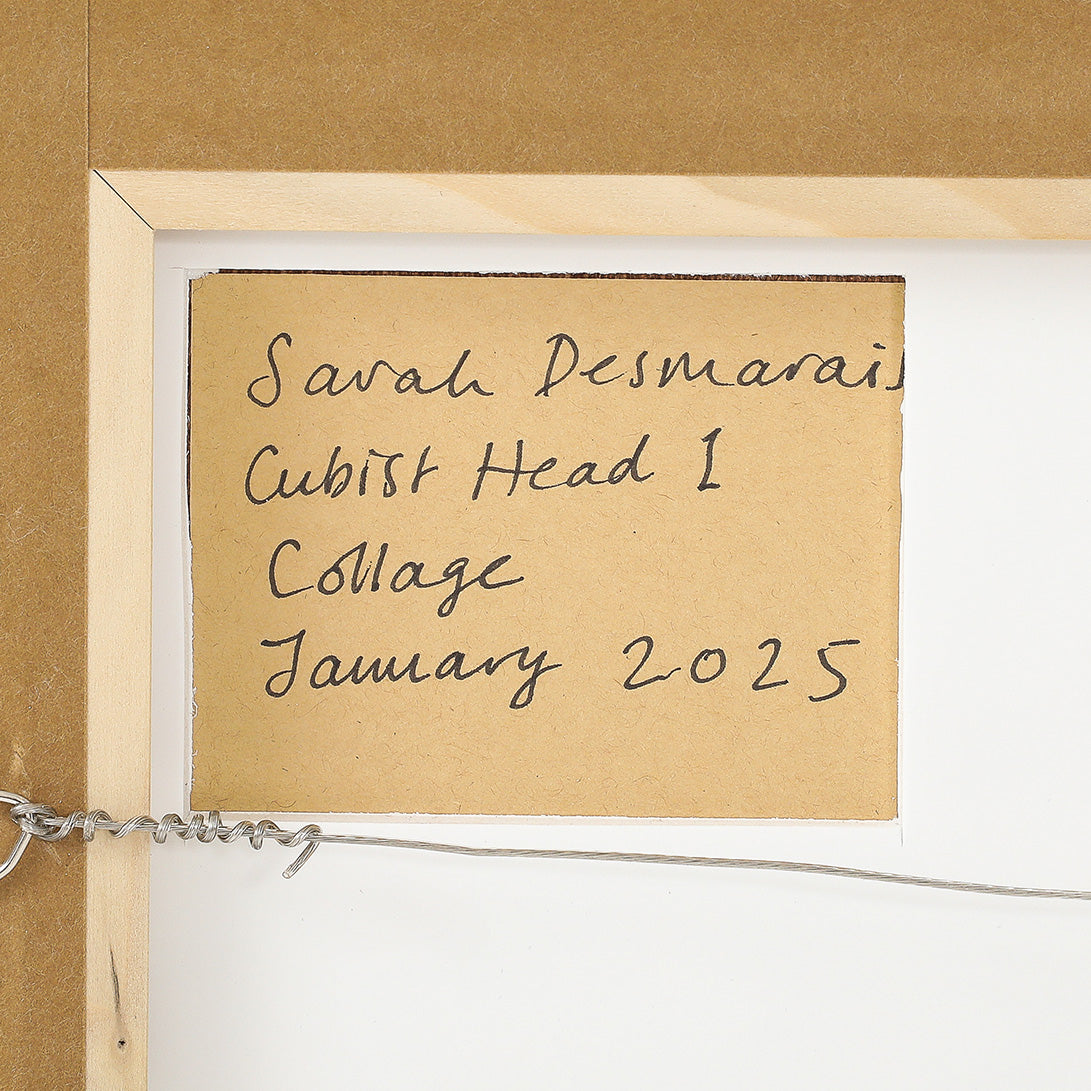 Sarah Desmarais
Cubist Head 1
Collage
January 2025